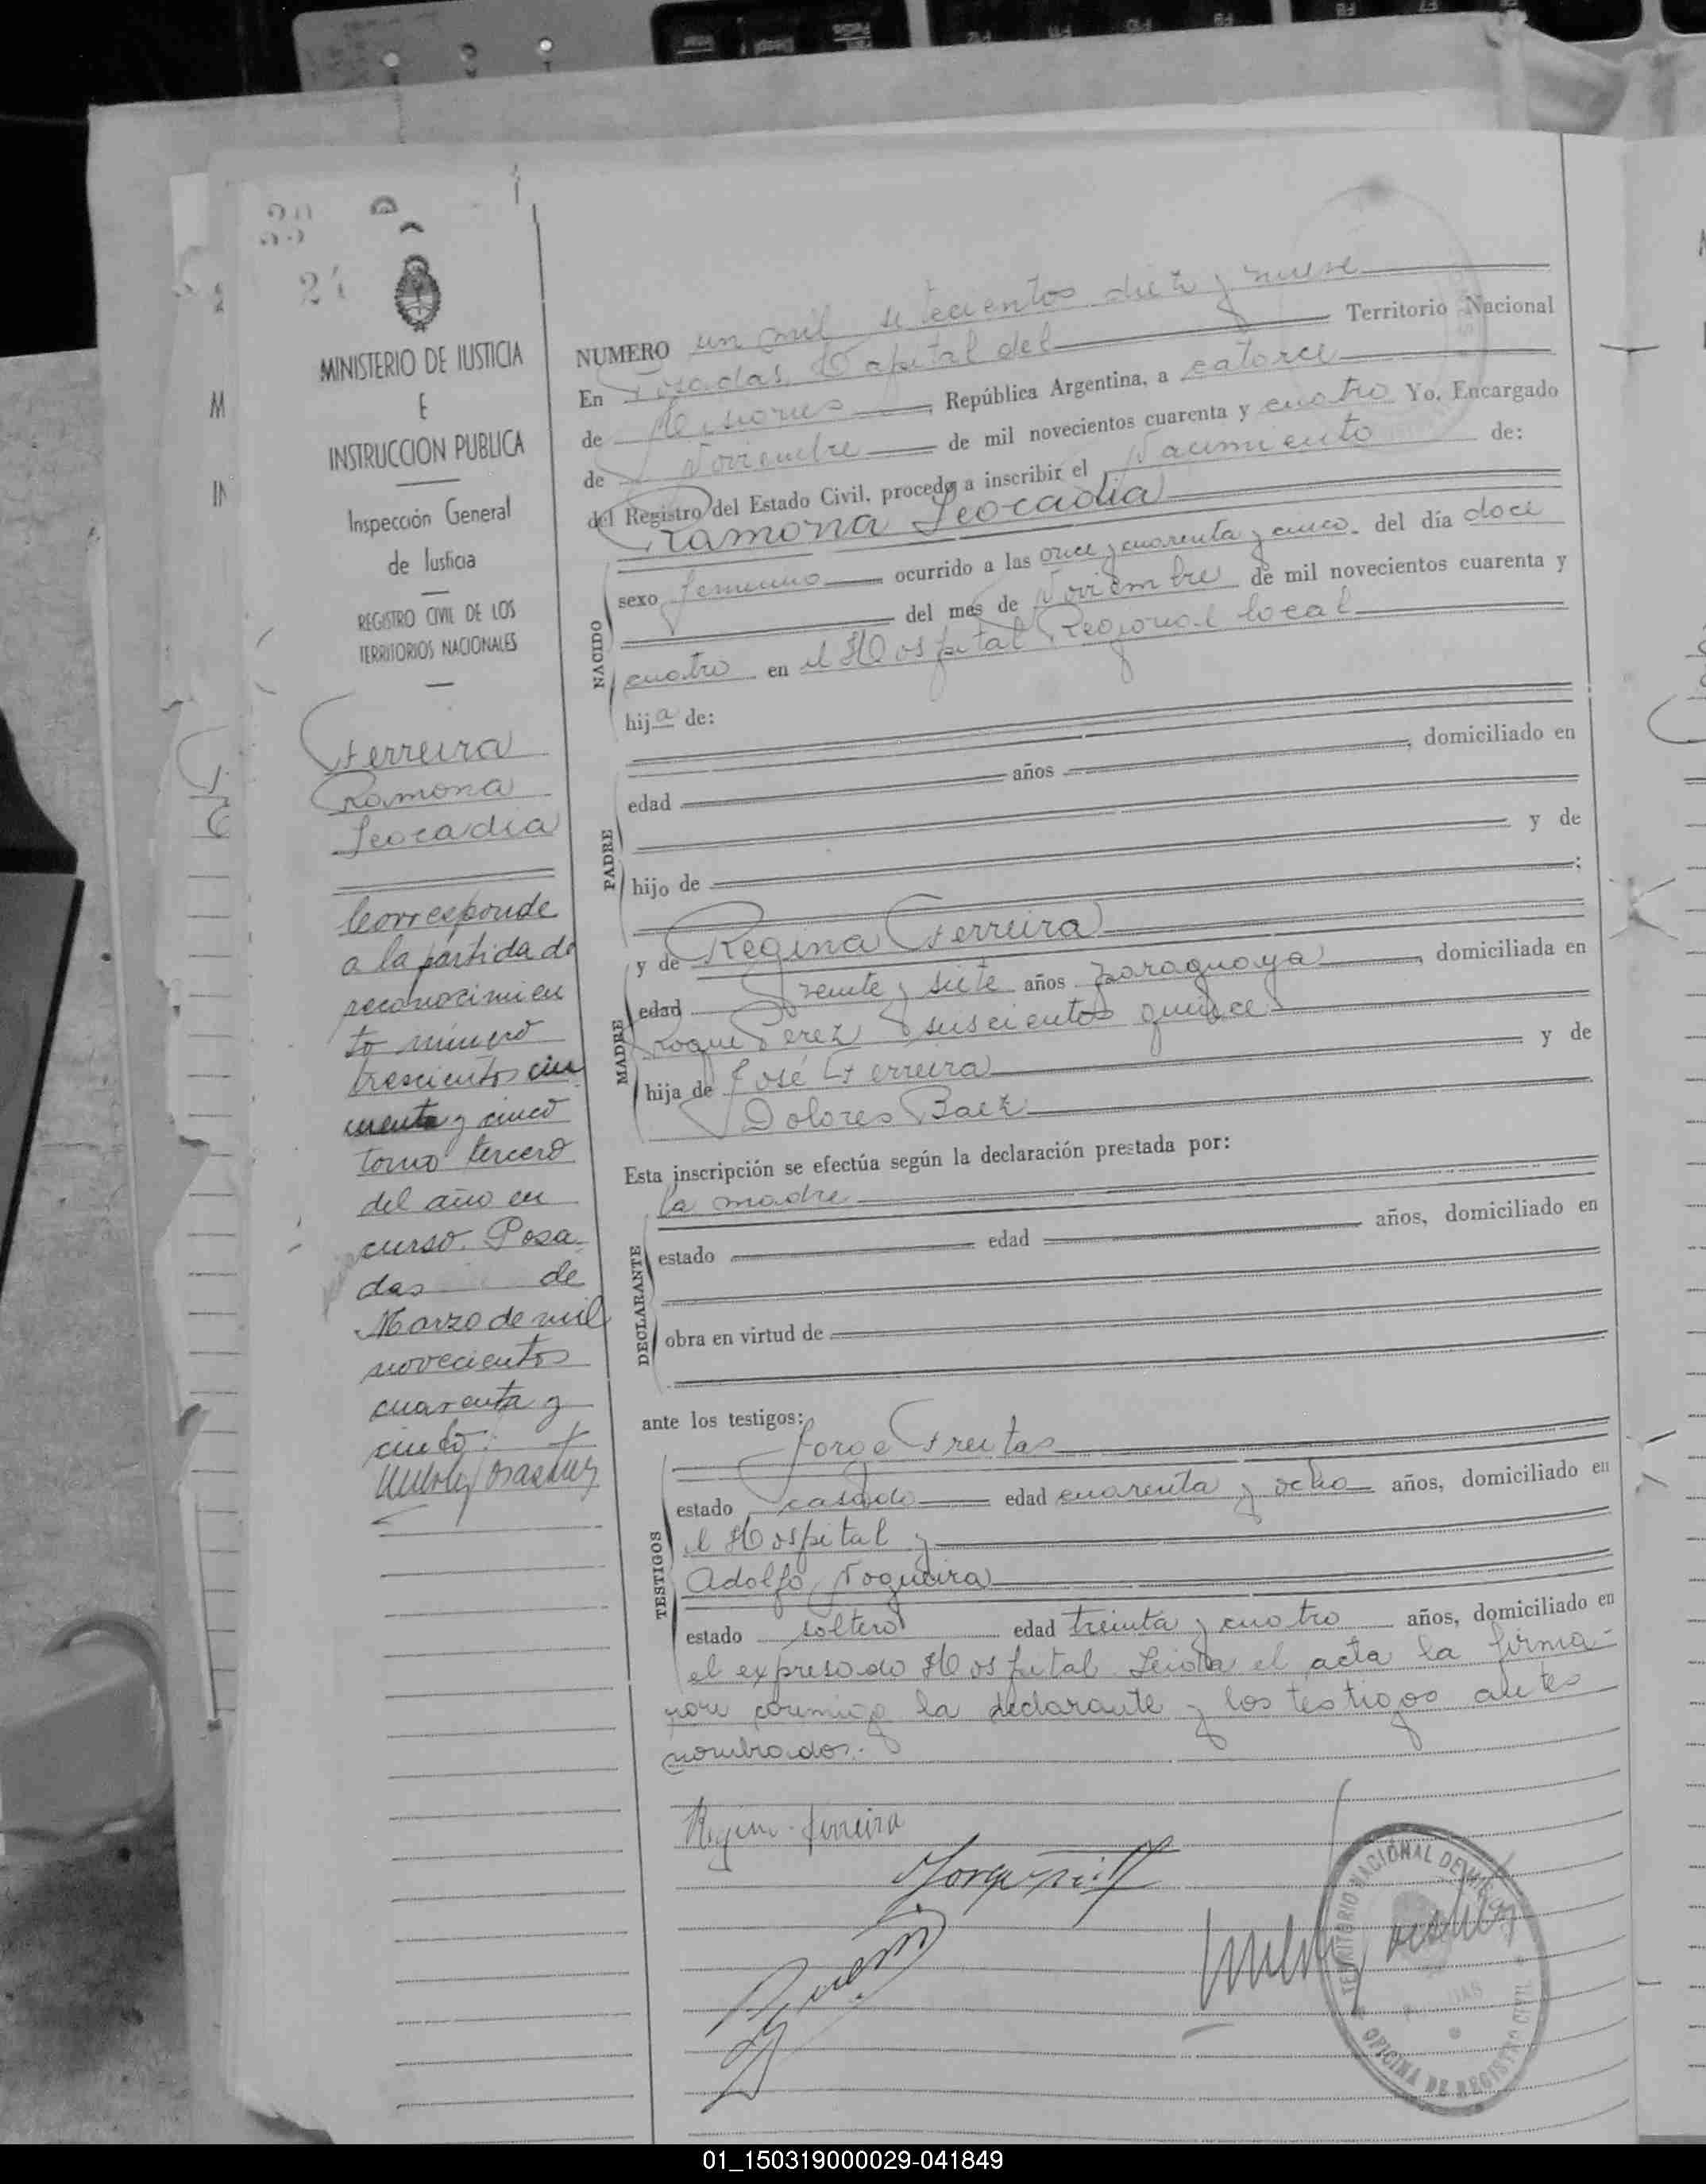 MINISTERIO DE JUSTICIA
E
INSTRUCCION PUBLICA
Inspección General
de Justicia
REGISTRO CIVIL DE LOS
TERRITORIOS NACIONALES
Ferreira
Ramona
Leocadia
Corresponde
a la partida de
reconocimien
to número
trescientos cin
cuenta y cinco
tomo tercero
del año en
curso. Posa
das de
Marzo de mil
novecientos
cuarenta y
cinco.
NUMERO un mil setecientos diez y nueve
En Posadas, Capital del Territorio Nacional
de Misiones, República Argentina, a catorce
de Noviembre de mil novecientos cuarenta y cuatro Yo, Encargado
del Registro del Estado Civil, procedo a inscribir el Nacimiento de:
Ramona Leocadia
NACIDO
sexo femenino ocurrido a las once y cuarenta y cinco del día doce
del mes de Noviembre de mil novecientos cuarenta y
cuatro en el Hospital Regional local
hija de:
PADRE
edad años , domiciliado en
hijo de y de
;
y de Regina Ferreira
MADRE
edad veinte y siete años paraguaya , domiciliada en
Roque Perez seiscientos quince
hija de José Ferreira y de
Dolores Baez
Esta inscripción se efectúa según la declaración prestada por:
la madre
DECLARANTE
estado edad años, domiciliado en
obra en virtud de
ante los testigos:
Jorge Freitas
TESTIGOS
estado casado edad cuarenta y ocho años, domiciliado en
el Hospital y
Adolfo Nogueira
estado soltero edad treinta y cuatro años, domiciliado en
el expresado Hospital. Leida el acta la firma-
ron conmigo la declarante y los testigos antes
nombrados.
Regina Ferreira
TERRITORIO NACIONAL DE MISIONES
POSADAS
OFICINA DE REGISTRO CIVIL
01_150319000029-041849